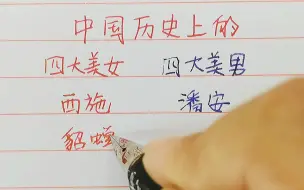 中国历史上的
四大美女 四大美男
西施 潘安
貂蝉